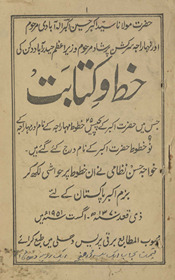 حضرت مولانا سید اکبر حسین اکبر الہ آبادی مرحوم
اور مہاراجہ سر کشن پرشاد مرحوم وزیر اعظم حیدر آباد دکن کی
خط و کتابت
جس میں حضرت اکبر کے پچیس خطوط مہاراجہ کے نام اور مہاراجہ کے
خطوط حضرت اکبر کے نام درج کئے گئے ہیں
خواجہ حسن نظامی نے ان خطوط پر حواشی لکھ کر
بزم اکبر پاکستان کے لئے
ذی قعدہ ۱۳۷۰ھ اگست ۱۹۵۱ء میں
محبوب المطابع برقی پریس دہلی میں طبع کرائے